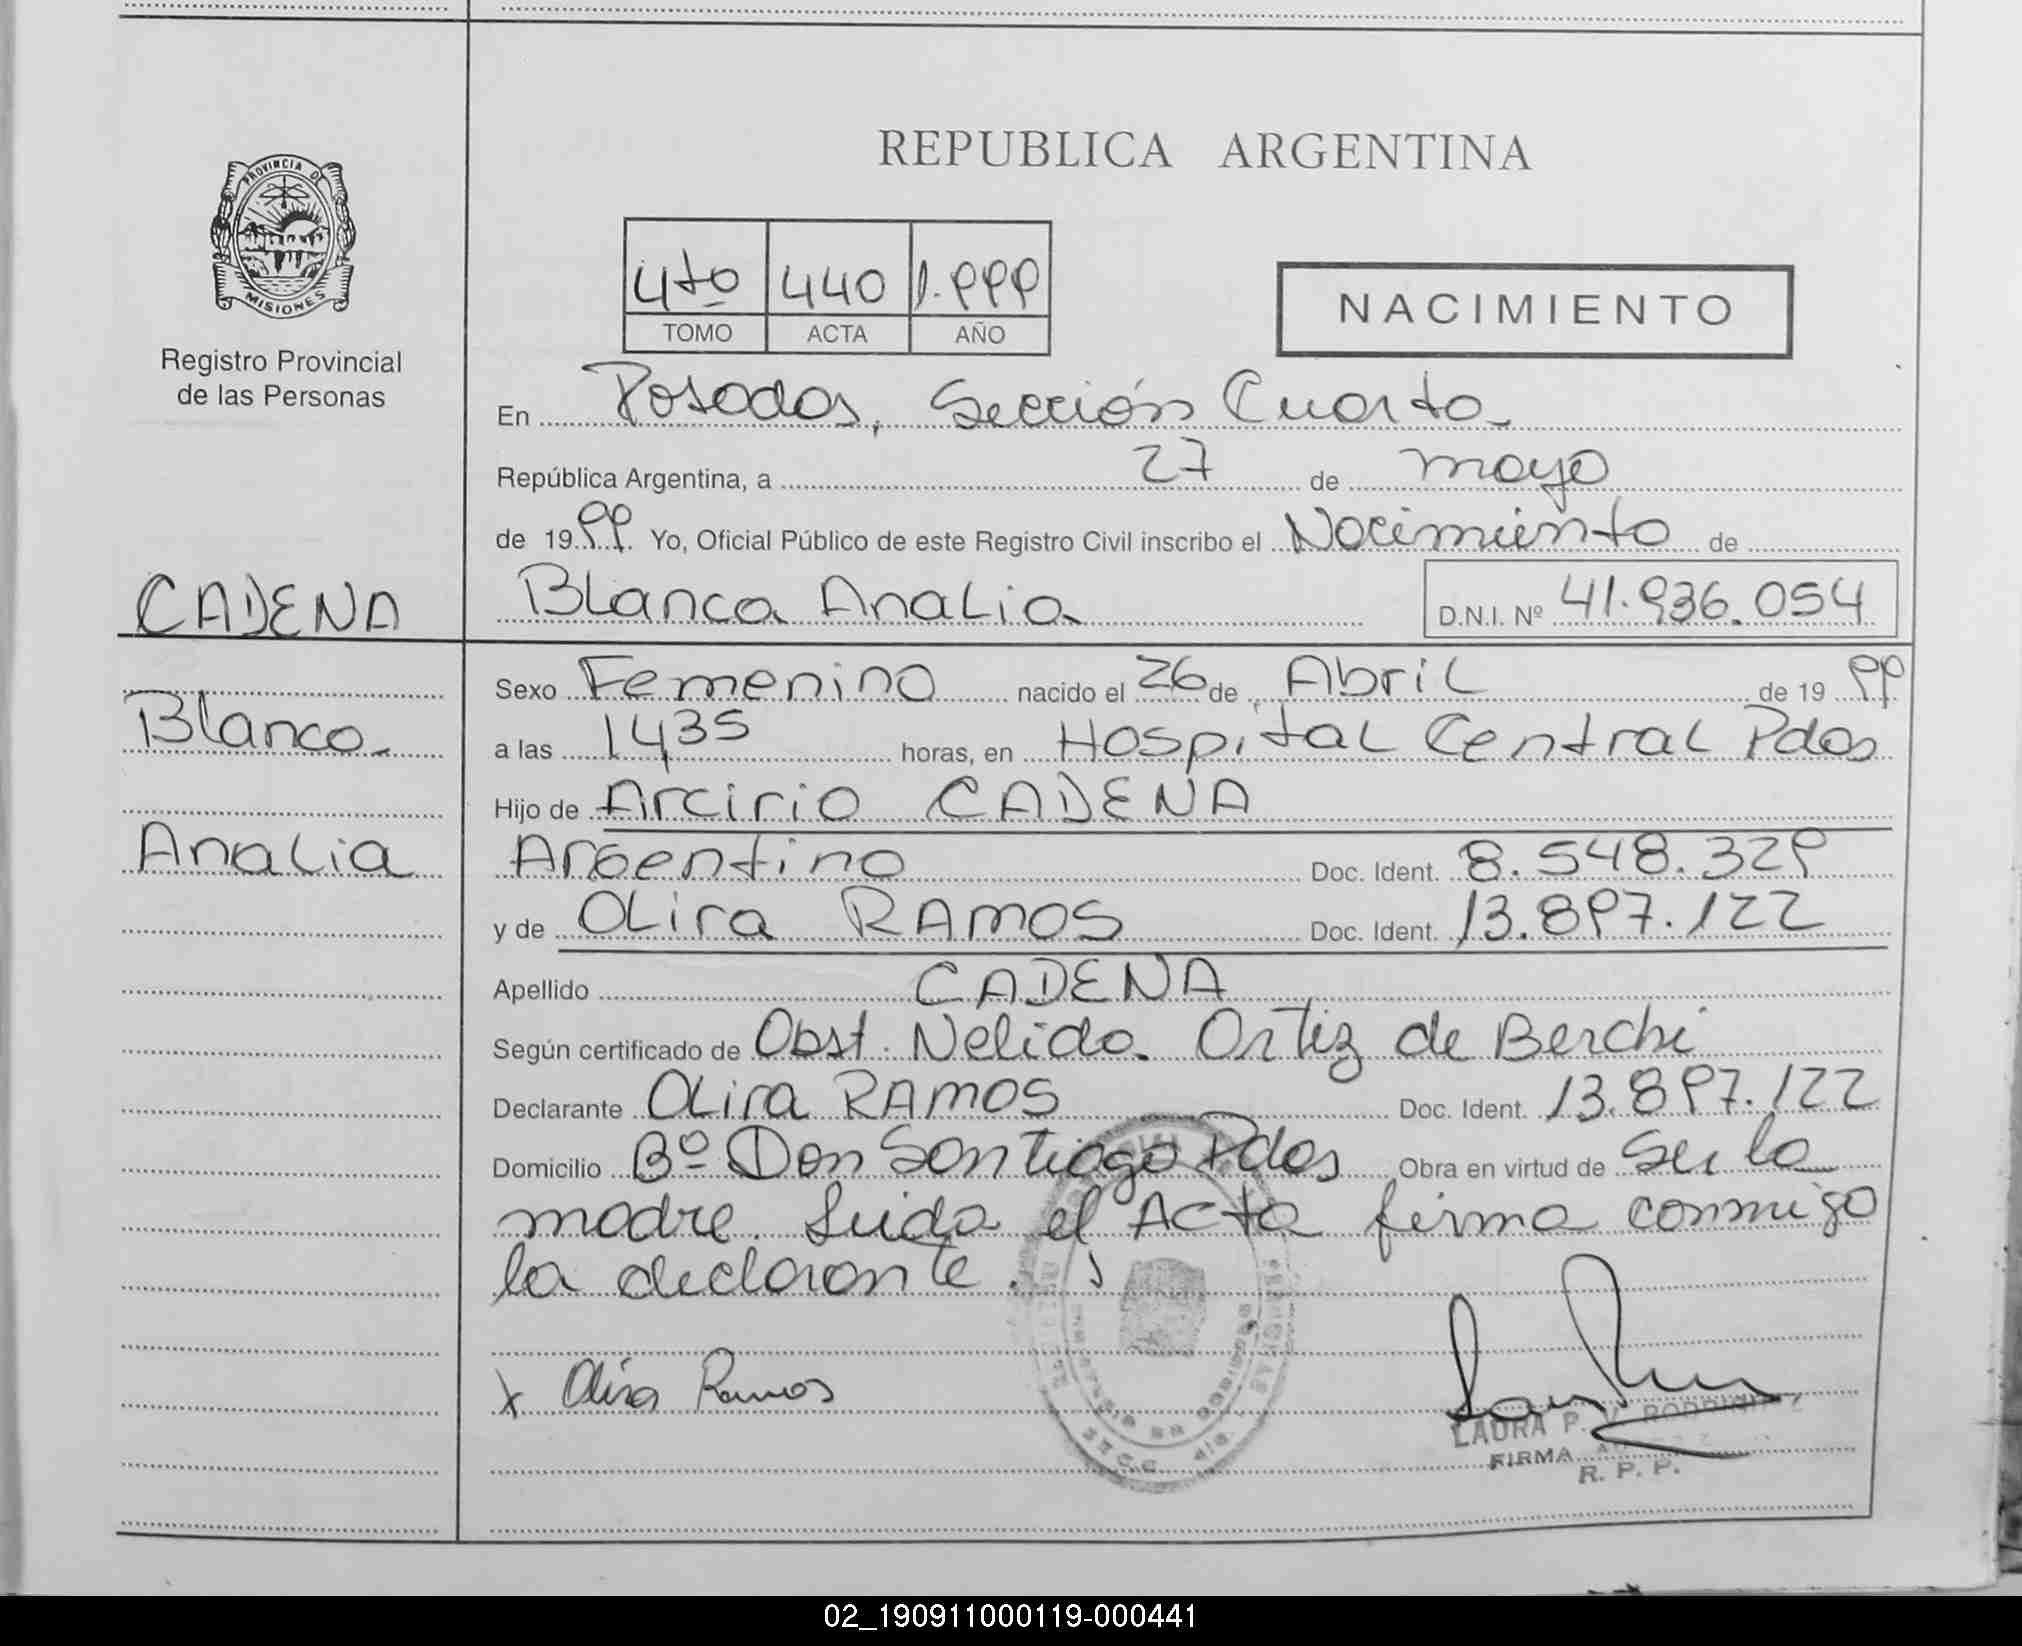 REPUBLICA ARGENTINA
PROVINCIA DE
MISIONES
Registro Provincial
de las Personas
4to 440 1.999
TOMO ACTA AÑO
NACIMIENTO
En Posadas, Sección Cuarta
República Argentina, a 27 de mayo
de 1999 Yo, Oficial Público de este Registro Civil inscribo el Nacimiento de
CADENA
Blanca Analia D.N.I. Nº 41.936.054
Blanca
Analia
Sexo Femenino nacido el 26 de Abril de 1999
a las 1435 horas, en Hospital Central Pdas
Hijo de Arcirio CADENA
Argentino Doc. Ident. 8.548.329
y de OLira RAMOS Doc. Ident. 13.897.122
Apellido CADENA
Según certificado de Obst. Nelida Ortiz de Berchi
Declarante OLira RAMOS Doc. Ident. 13.897.122
Domicilio Bº Don Santiago Pdas Obra en virtud de Ser la
madre. Leida el Acta firma conmigo
la declarante.
x Olira Ramos
LAURA P. V. RODRIGUEZ
FIRMA
R. P. P.
02_190911000119-000441